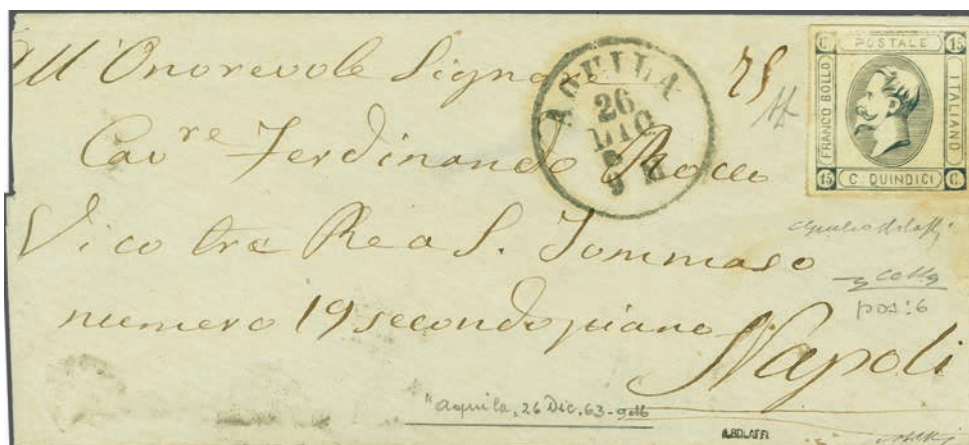 All' Onorevole Signore
Cav.re Ferdinando Rocco
Vico tre Re a S. Tommaso
numero 19 secondo piano
Napoli
AQUILA
26
C. POSTALE 15
FRANCO BOLLO
ITALIANO
15 C. QUINDICI C.
pos: 6
"aquila, 26 Dic. 63 -
A.BOLAFFI